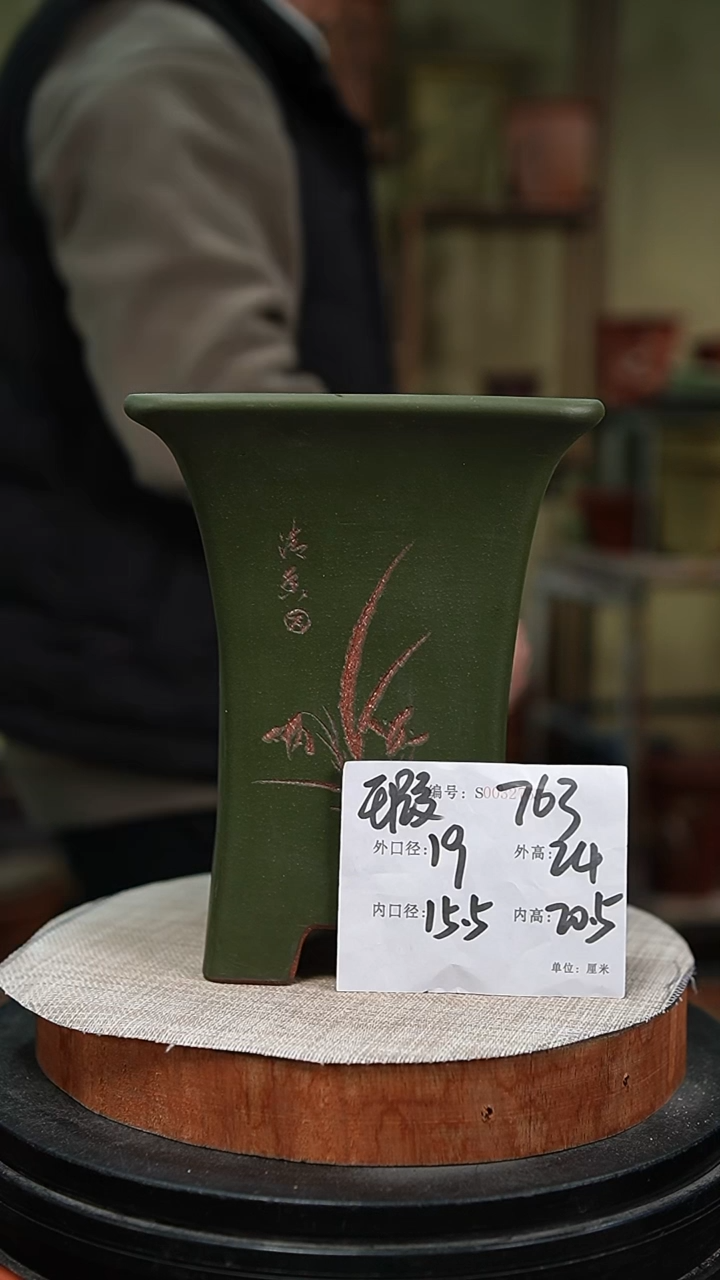 清香
瑕 编号: S0032 763
外口径: 19 外高: 24
内口径: 15.5 内高: 20.5
单位: 厘米